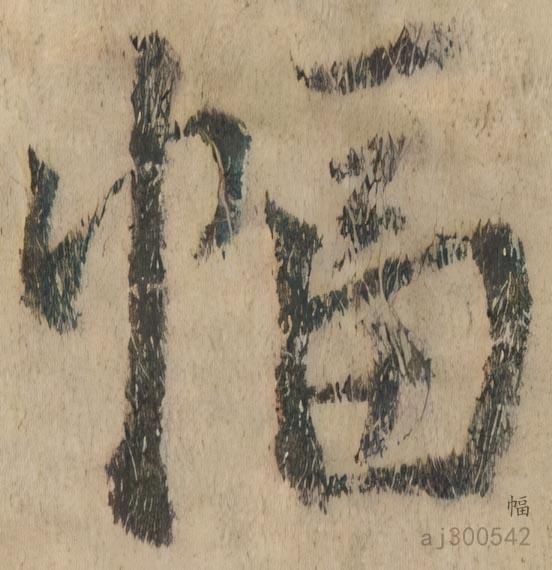 幅
幅
aj300542